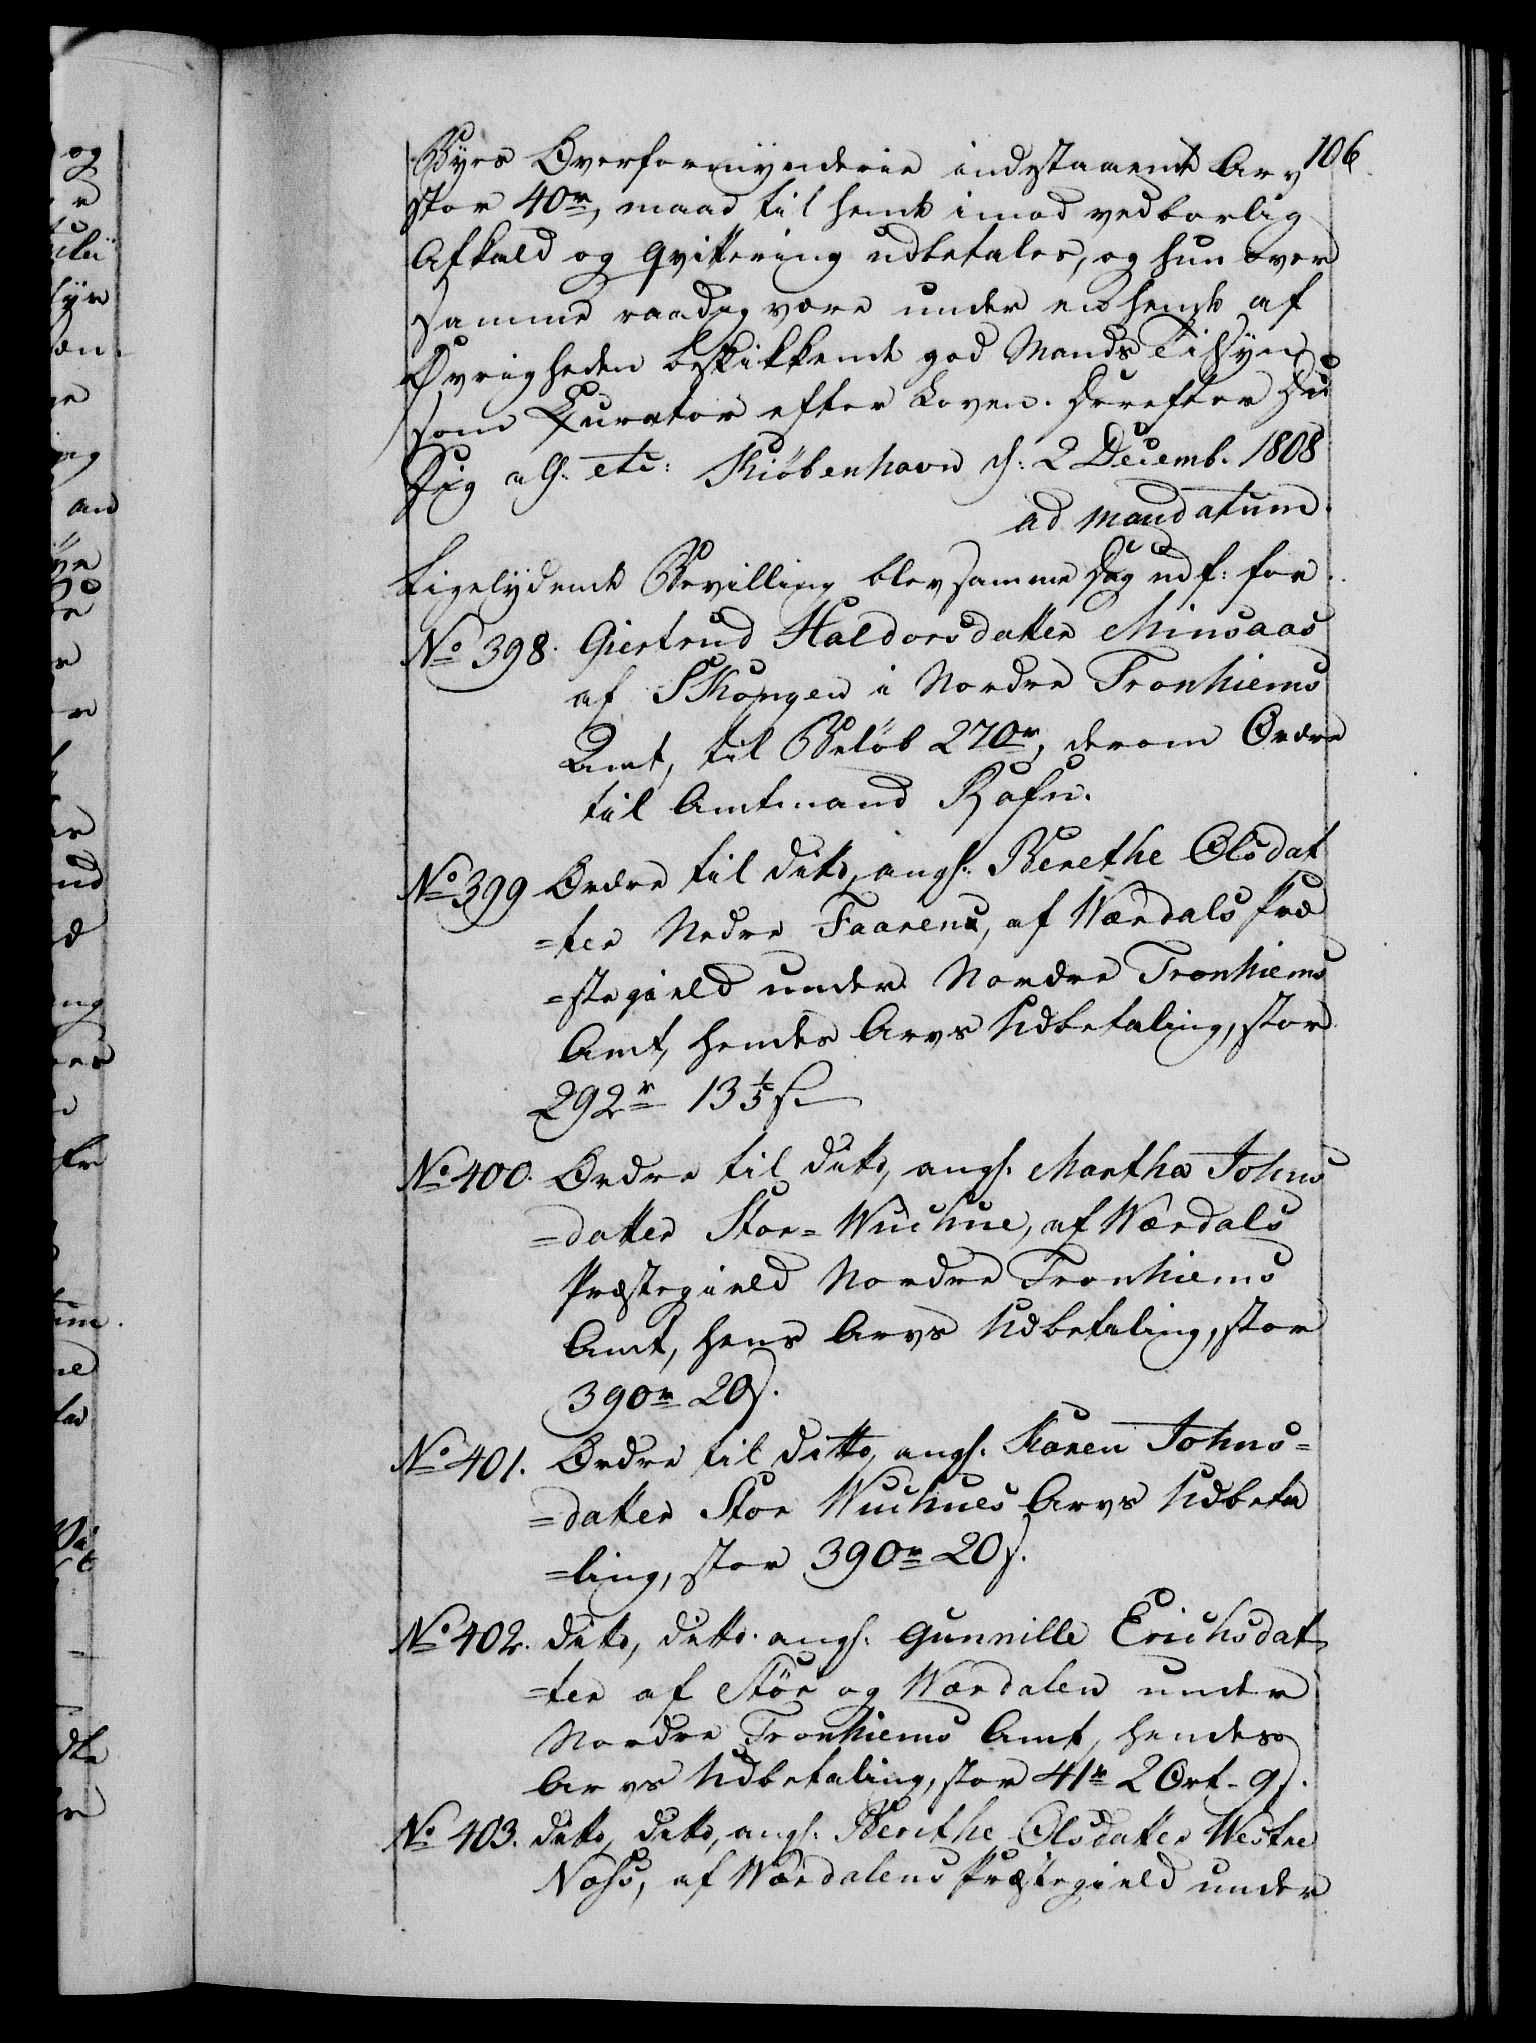 106
Byes Overformynderie indestaaende Arv
stor 40r, maae til hende imod vedbørlig
Afkald og qvittering udbetales, og hun over
samme raadig være under en hende af
Øvrigheden beskikkende god Mands Tilsyn
som Curator efter Loven. Derefter Du
Dig a G. etc: Kiøbenhavn d: 2 Decemb. 1808
ad mandatum.
Ligelydende Bevilling blev samme Dag udf: for
No 398. Giertrud Haldorsdatter Minsaas
af Skongen i Nordre Tronhiems
Amt, til Beløb 270r, derom Ordre
til Amtmand Rafn.
No 399 Ordre til ditto, angl. Berethe Olsdat
=ter Nedre Faaren, af Værdals Præ
=stegield under Nordre Tronhiems
Amt, hendes Arvs Udbetaling, stor
292r 13 1/5 s.
No 400. Ordre til ditto, angl. Martha Johns
=datter Stor= Wuchue, af Værdals
Præstegield Nordre Tronhiems
Amt, hends Arvs Udbetaling, stor
390r 20s.
No 401. Ordre til ditto, angl. Karen Johns=
=datter Stor Wuchues Arvs Udbeta
=ling, stor 390r 20s.
No 402. ditto, ditto. angl. Gunnille Erichsdat
=ter af Stör og Værdalen under
Nordre Tronhiems Amt, hendes
Arvs Udbetaling, stor 41r 2 Ort. 9s.
No 403. ditto, ditto, angl. Berithe Olsdatter Westre
Næss, af Værdalens Præstegield under